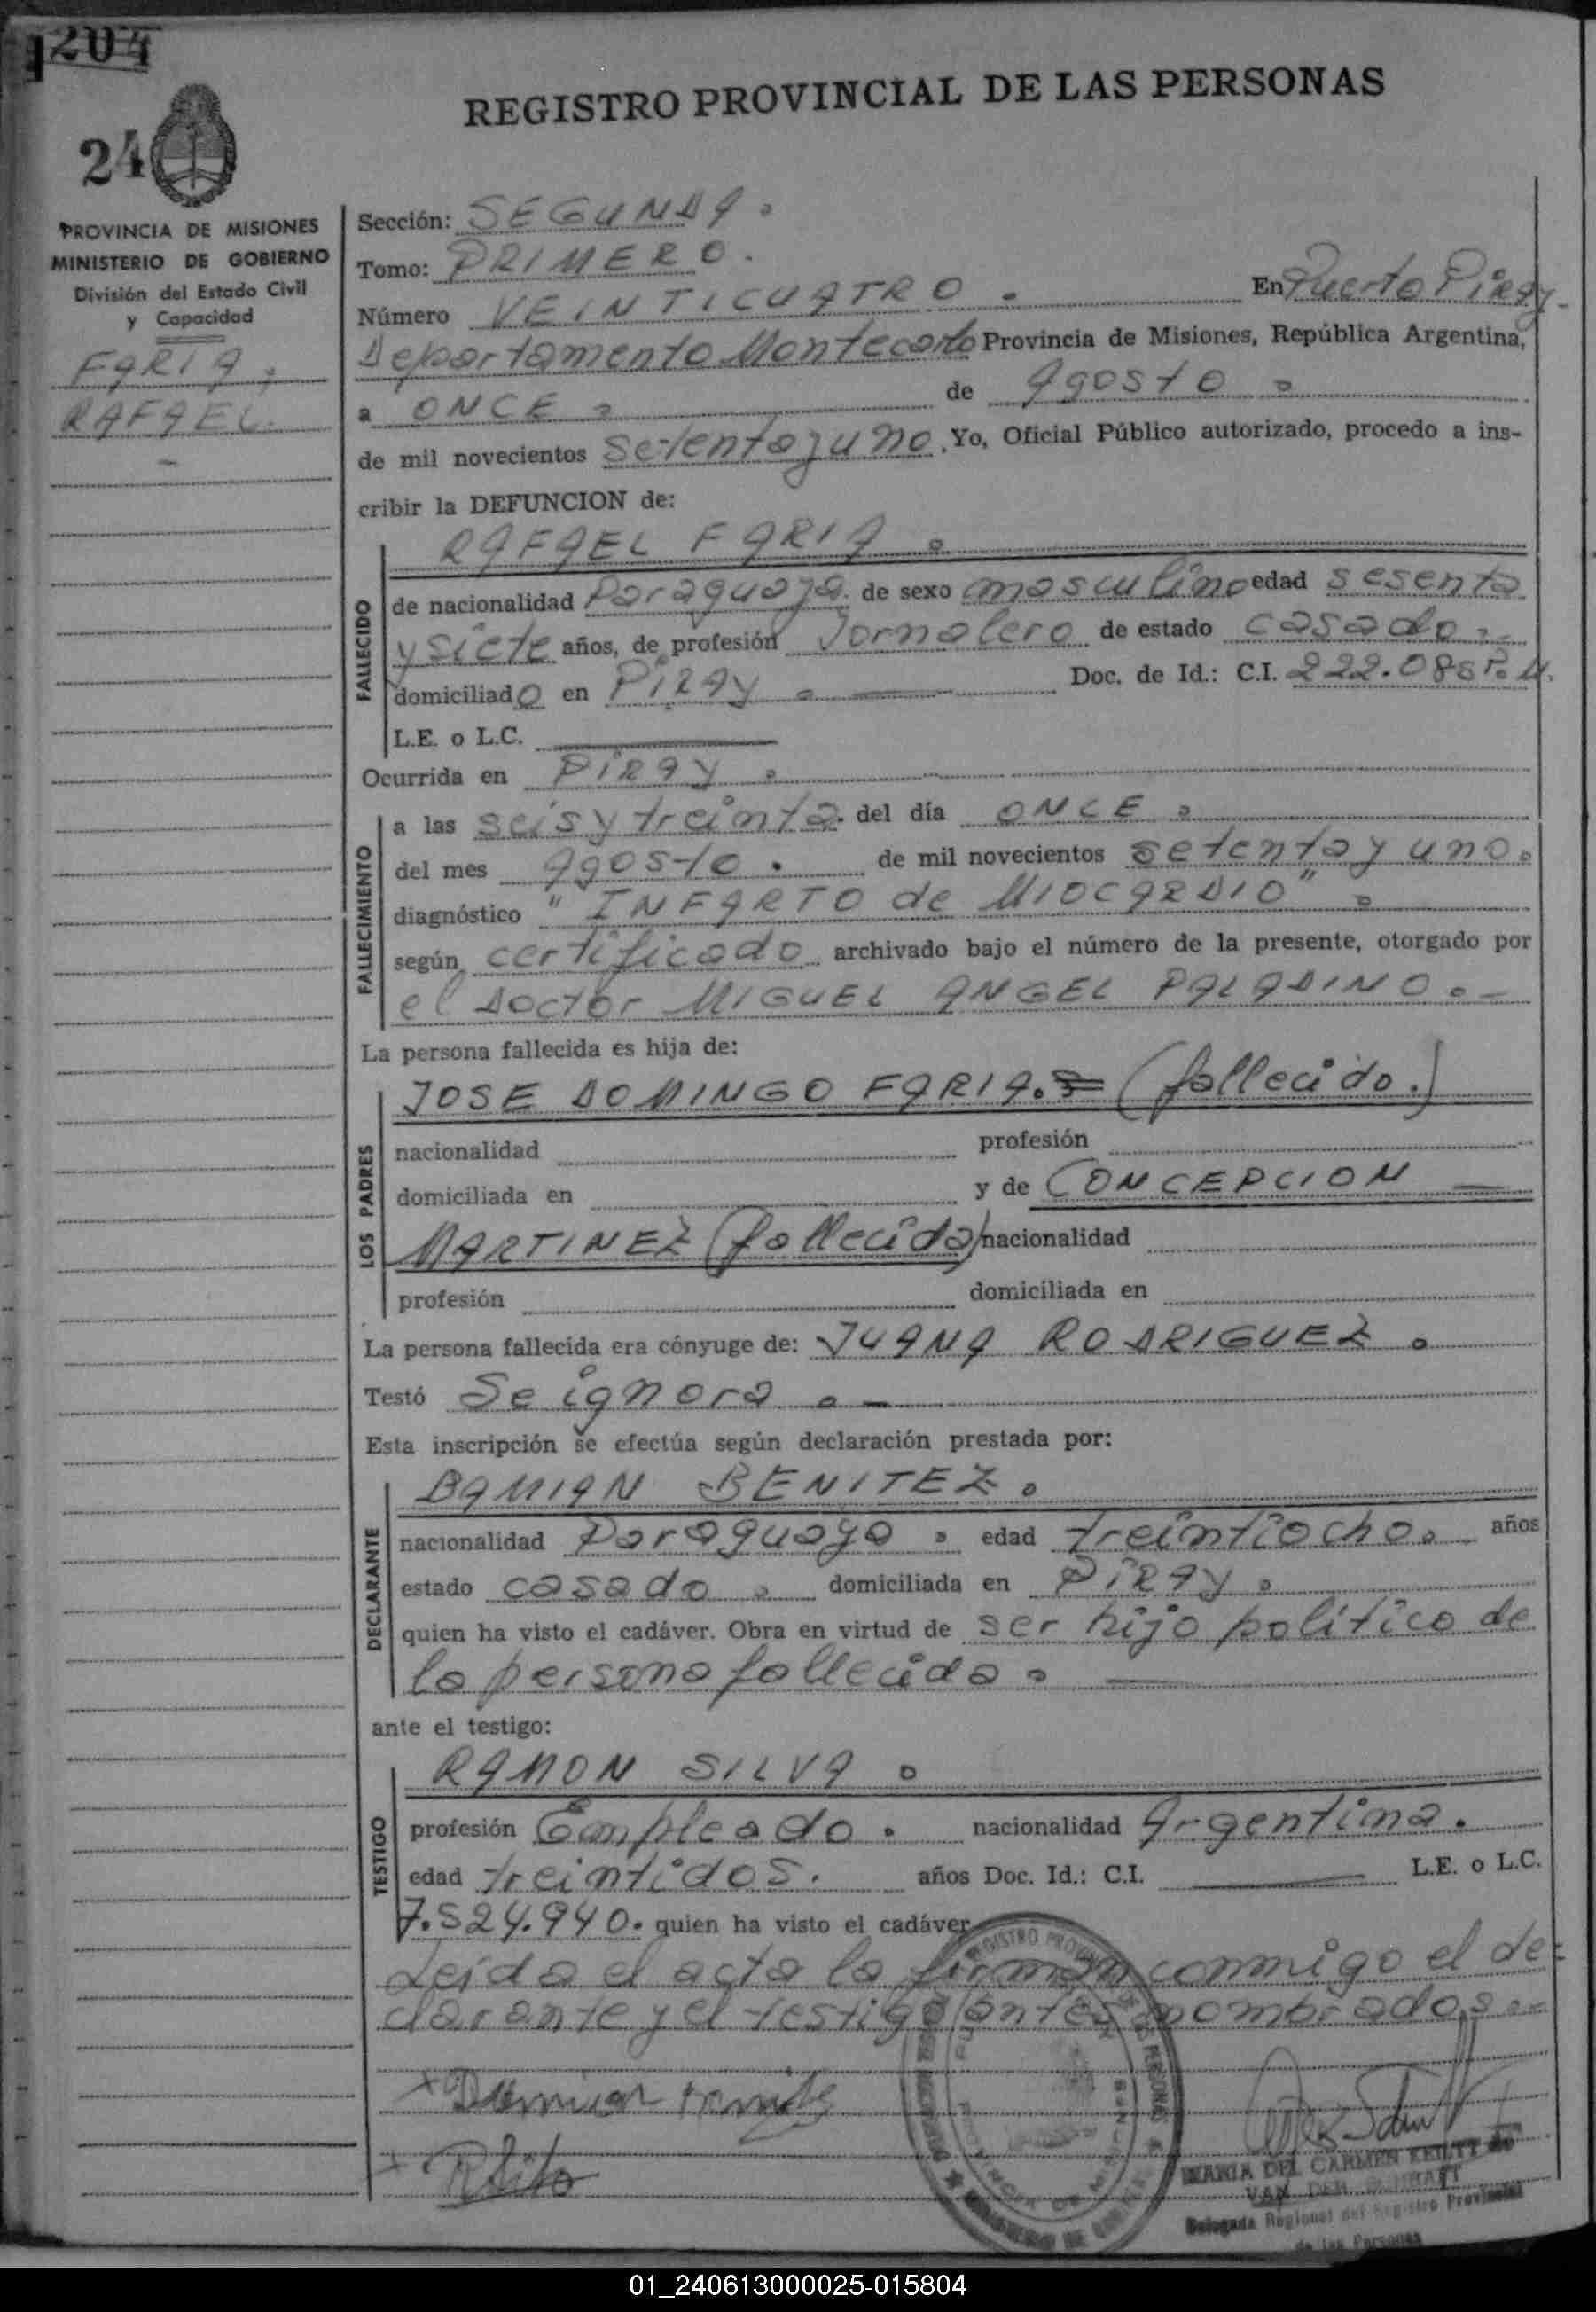 204
24
REGISTRO PROVINCIAL DE LAS PERSONAS
PROVINCIA DE MISIONES
MINISTERIO DE GOBIERNO
División del Estado Civil
y Capacidad
FARIA,
RAFAEL.
Sección: SEGUNDA.
Tomo: PRIMERO.
Número VEINTICUATRO. En Puerto Piray.
Departamento Montecarlo Provincia de Misiones, República Argentina,
a ONCE. de Agosto.
de mil novecientos setenta y uno, Yo, Oficial Público autorizado, procedo a ins-
cribir la DEFUNCION de:
FALLECIDO
RAFAEL FARIA.
de nacionalidad Paraguaya. de sexo masculino edad sesenta
y siete años, de profesión Jornalero de estado casado.-
domiciliado en PIRAY. Doc. de Id.: C.I. 222.085
L.E. o L.C.
Ocurrida en PIRAY.
FALLECIMIENTO
a las seis y treinta. del día ONCE.
del mes Agosto. de mil novecientos setenta y uno.
diagnóstico "INFARTO de MIOCARDIO".
según certificado archivado bajo el número de la presente, otorgado por
el Doctor MIGUEL ANGEL PALADINO.-
La persona fallecida es hija de:
LOS PADRES
JOSE DOMINGO FARIA.= (fallecido.)
nacionalidad profesión
domiciliada en y de CONCEPCION
MARTINEZ (fallecida) nacionalidad
profesión domiciliada en
La persona fallecida era cónyuge de: JUANA RODRIGUEZ.
Testó Se ignora.-
Esta inscripción se efectúa según declaración prestada por:
DECLARANTE
DAMIAN BENITEZ.
nacionalidad Paraguaya. edad treintiocho. años
estado casado. domiciliada en PIRAY.
quien ha visto el cadáver. Obra en virtud de ser hijo político de
la persona fallecida.
ante el testigo:
TESTIGO
RAMON SILVA.
profesión Empleado. nacionalidad Argentina.
edad treintidos. años Doc. Id.: C.I. L.E. o L.C.
7.524.940. quien ha visto el cadáver
Leída el acta la firman conmigo el de=
clarante y el testigo antes nombrados.-
MARIA DEL CARMEN de
VAN DER
Delegada Regional del Registro Provincial
de las Personas
01_240613000025-015804